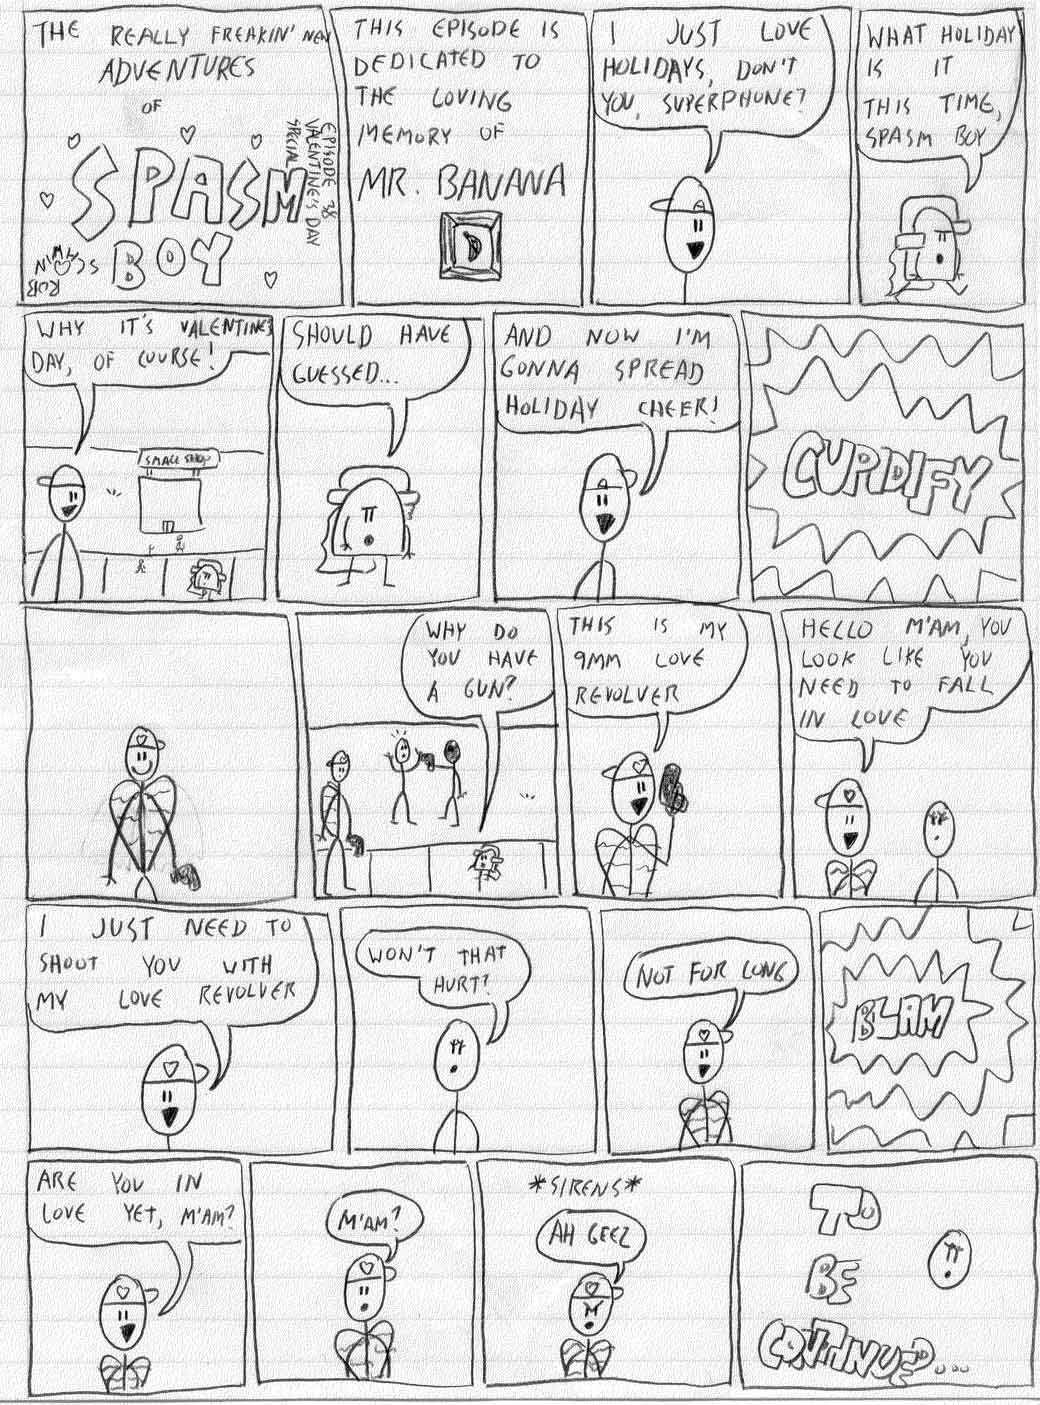 THE REALLY FREAKIN' NEW
ADVENTURES
OF
SPASM
BOY
EPISODE 38
VALENTINE'S DAY
SPECIAL
THIS EPISODE IS
DEDICATED TO
THE LOVING
MEMORY OF
MR. BANANA
I JUST LOVE
HOLIDAYS, DON'T
YOU, SUPERPHONE?
WHAT HOLIDAY
IS IT
THIS TIME,
SPASM BOY
WHY IT'S VALENTINES
DAY, OF COURSE!
SMALL SHOP
SHOULD HAVE
GUESSED...
AND NOW I'M
GONNA SPREAD
HOLIDAY CHEER!
CUPIDIFY
WHY DO
YOU HAVE
A GUN?
THIS IS MY
9MM LOVE
REVOLVER
HELLO M'AM, YOU
LOOK LIKE YOU
NEED TO FALL
IN LOVE
I JUST NEED TO
SHOOT YOU WITH
MY LOVE REVOLVER
WON'T THAT
HURT?
NOT FOR LONG
BLAM
ARE YOU IN
LOVE YET, M'AM?
M'AM?
*SIRENS*
AH GEEZ
TO
BE
CONTINUED...